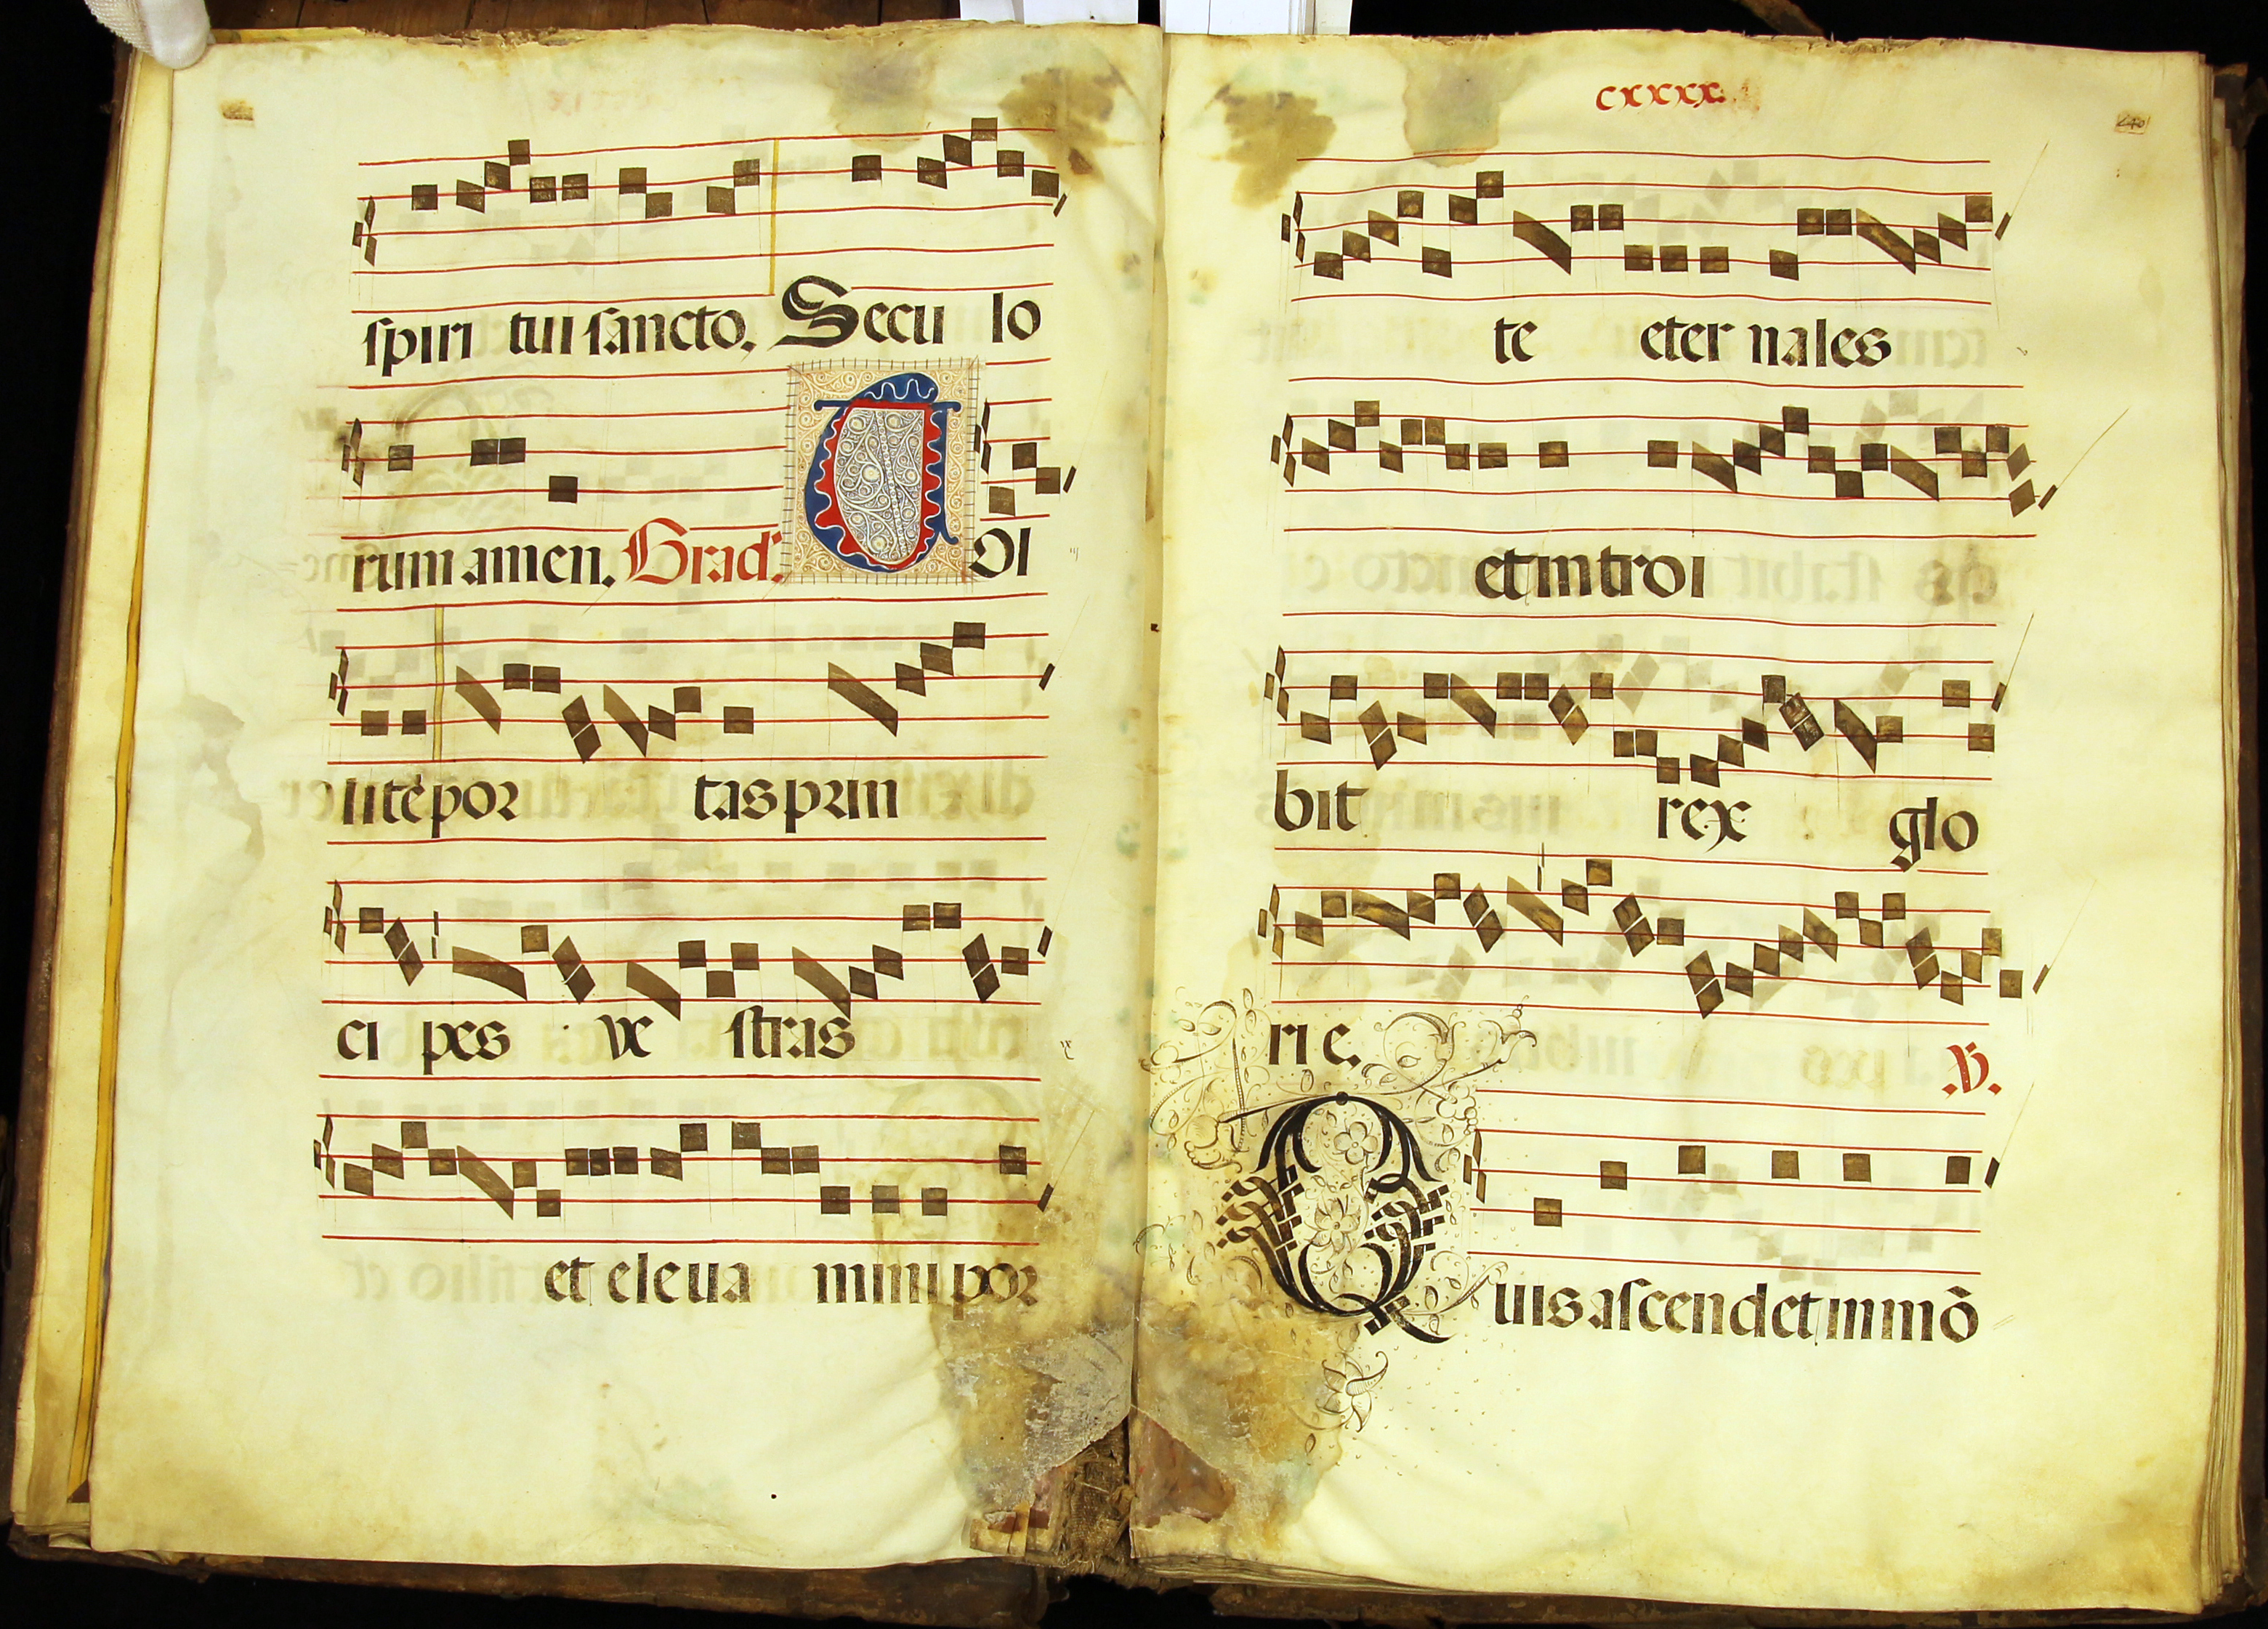 spiri tui sancto. Secu lo
rum amen. Grad. T Ol
litē por tas prin
ci pes ve stras
et eleua mini por
cxxxx.
te eter nales
et intro i
bit rex glo
ri e. V.
Quis ascendet in mō